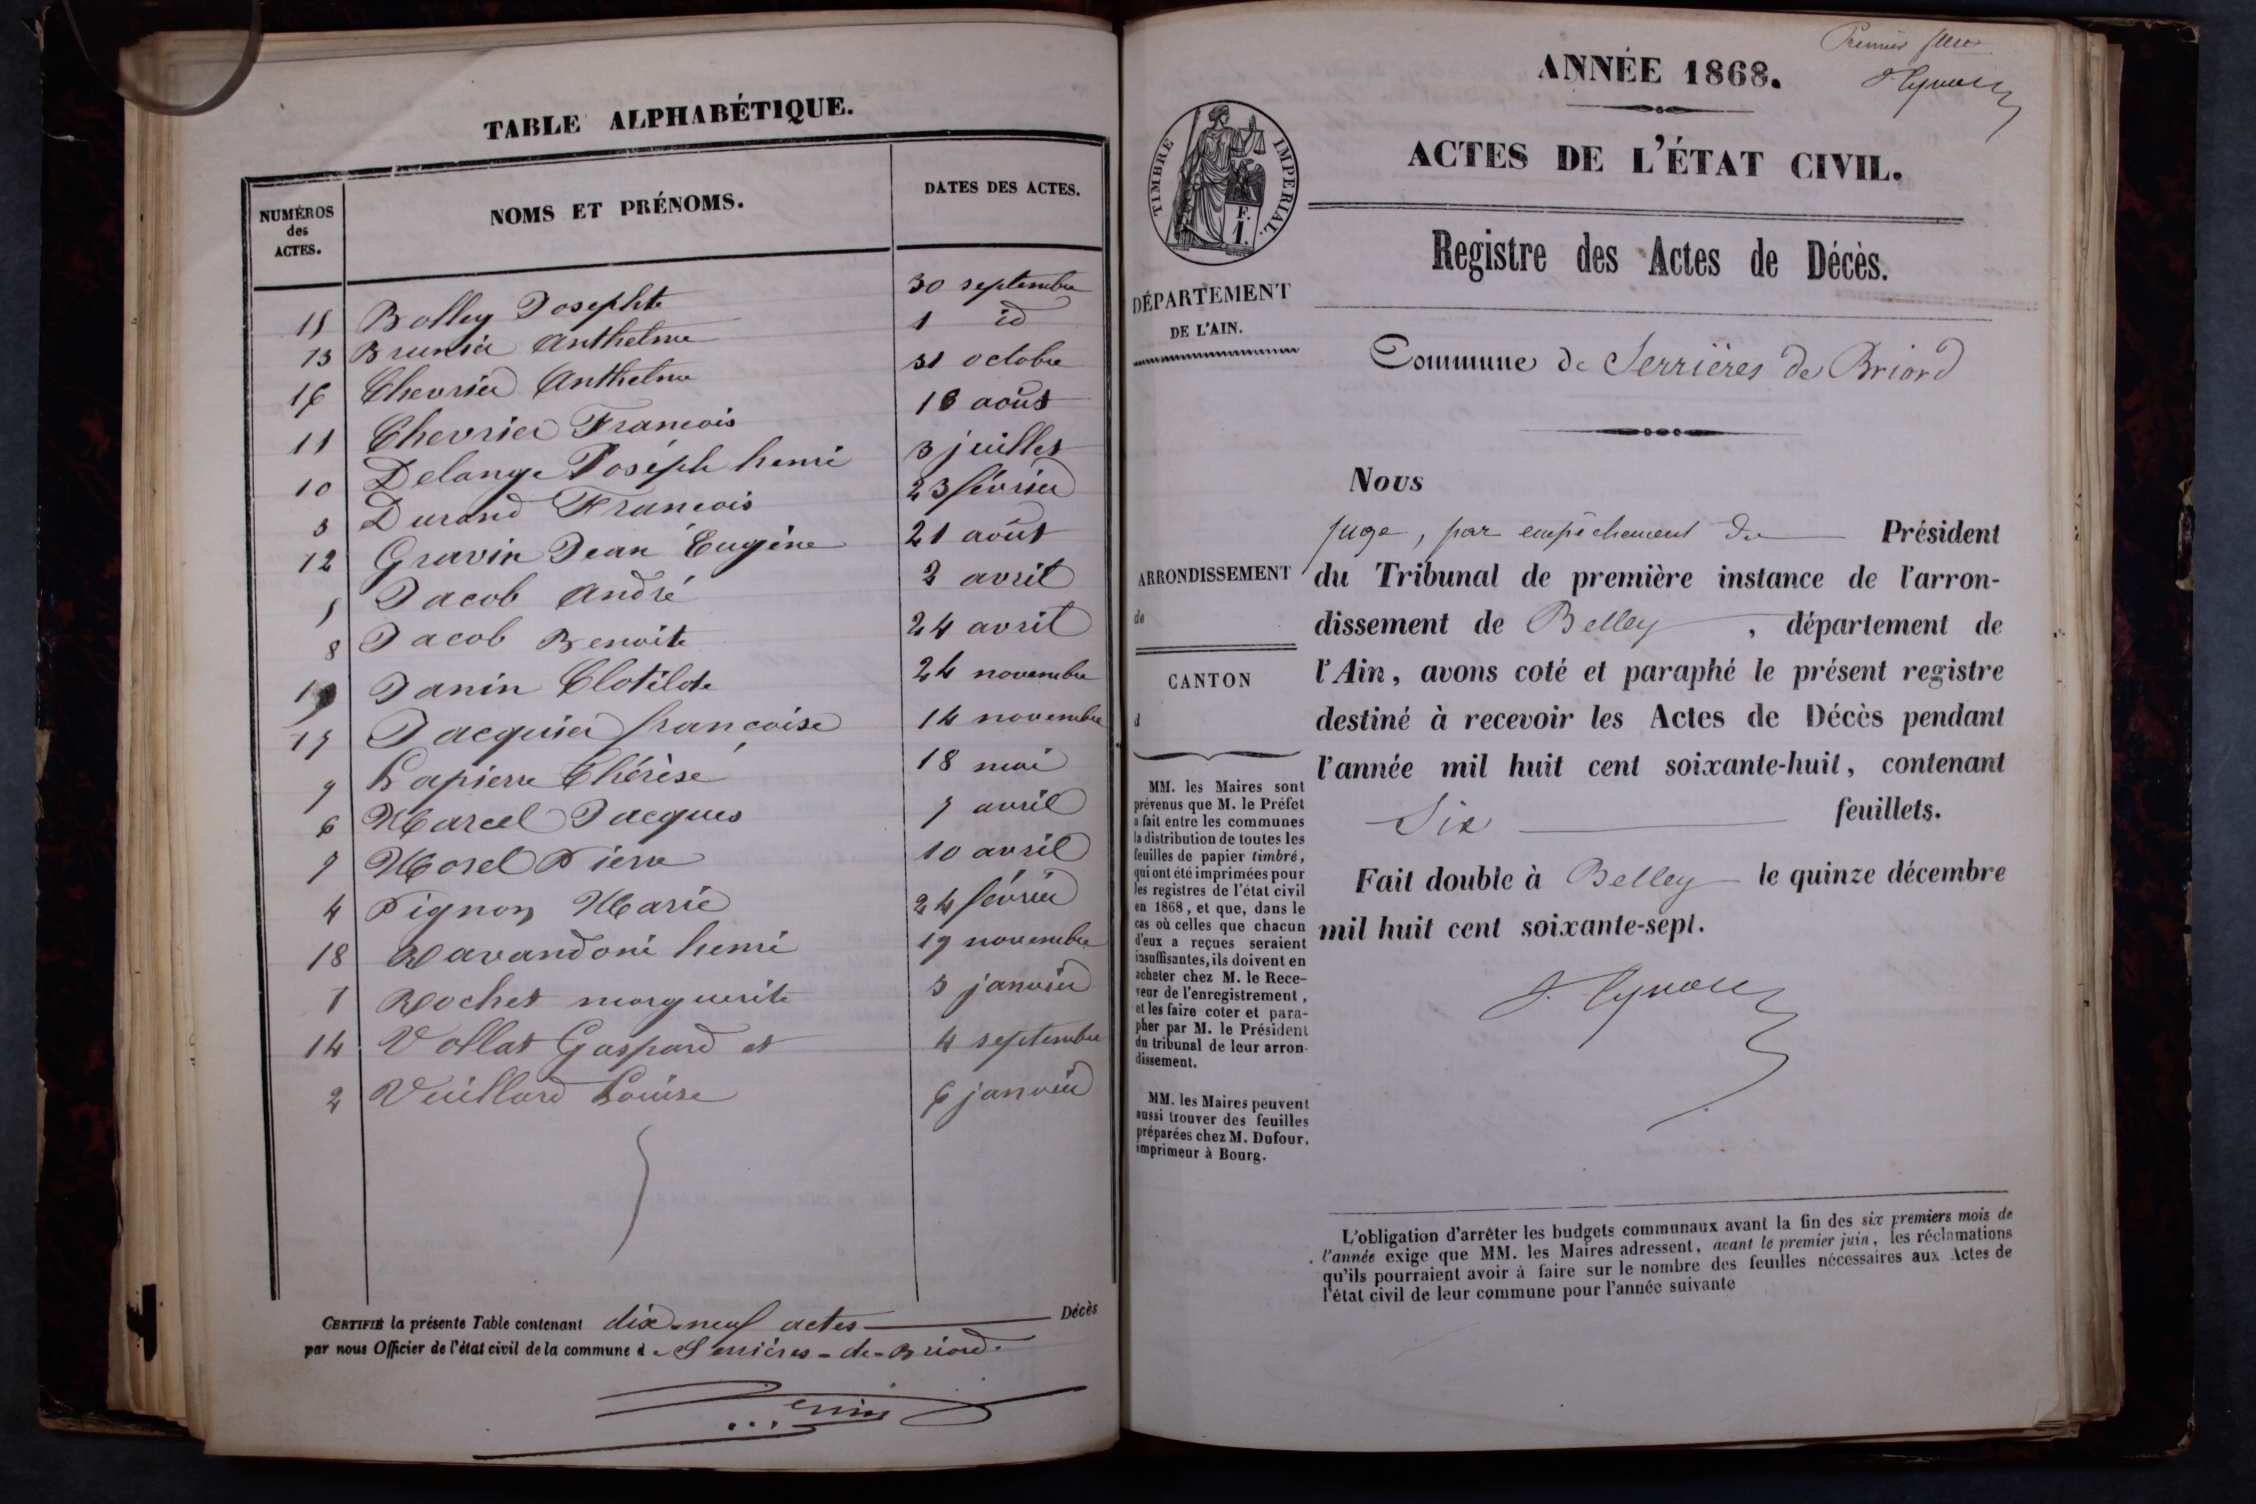 TABLE ALPHABÉTIQUE.
NUMÉROS des ACTES.
NOMS ET PRÉNOMS.
DATES DES ACTES.
15 Bolley Josephte 30 septembre
13 Brunier Anthelme 1 id
16 Chevrier Anthelme 31 octobre
11 Chevrier Francois 18 août
10 Delange Joséph henri 3 juillet
3 Durand Francois 23 février
12 Gravin Jean Eugène 21 août
5 Jacob André 2 avril
8 Jacob Benoite 24 avril
19 Janin Clotilde 24 novembre
17 Jacquier francoise 14 novembre
9 Lapierre Thérèse 18 mai
6 Marcel Jacques 7 avril
7 Morel Pierre 10 avril
4 Pignon Marie 24 février
18 Ravandoni henri 19 novembre
1 Rochet marguerite 3 janvier
14 Vollat Gaspard et 4 septembre
2 Vuillard Louise 6 janvier
CERTIFIÉ la présente Table contenant dix-neuf actes Décès
par nous Officier de l'état civil de la commune de Serrières-de-Briord.
Premier
ANNÉE 1868.
ACTES DE L'ÉTAT CIVIL.
TIMBRE IMPÉRIAL.
F. 1.
Registre des Actes de Décès.
DÉPARTEMENT
DE L'AIN.
Commune de Serrières de Briord
Nous
juge, par empêchement du Président
ARRONDISSEMENT
de
du Tribunal de première instance de l'arron-
dissement de Belley, département de
CANTON
d
l'Ain, avons coté et paraphé le présent registre
destiné à recevoir les Actes de Décès pendant
l'année mil huit cent soixante-huit, contenant
Six feuillets.
Fait double à Belley le quinze décembre
mil huit cent soixante-sept.
MM. les Maires sont
prévenus que M. le Préfet
a fait entre les communes
la distribution de toutes les
feuilles de papier timbré,
qui ont été imprimées pour
les registres de l'état civil
en 1868, et que, dans le
cas où celles que chacun
d'eux a reçues seraient
insuffisantes, ils doivent en
acheter chez M. le Rece-
veur de l'enregistrement,
et les faire coter et para-
pher par M. le Président
du tribunal de leur arron-
dissement.
MM. les Maires peuvent
aussi trouver des feuilles
préparées chez M. Dufour,
imprimeur à Bourg.
L'obligation d'arrêter les budgets communaux avant la fin des six premiers mois de
l'année exige que MM. les Maires adressent, avant le premier juin, les réclamations
qu'ils pourraient avoir à faire sur le nombre des feuilles nécessaires aux Actes de
l'état civil de leur commune pour l'année suivante